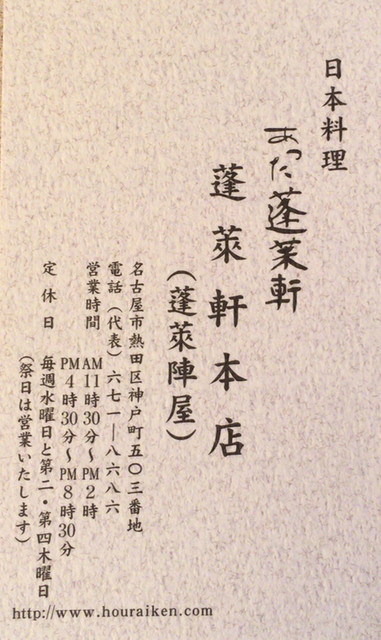 日本料理
あつた蓬莱軒
蓬萊軒本店
（蓬萊陣屋）
名古屋市熱田区神戸町五〇三番地
電話（代表）六七一―八六八六
営業時間　AM11時30分〜PM2時
PM4時30分〜PM8時30分
定休日　毎週水曜日と第二・第四木曜日
（祭日は営業いたします）
http://www.houraiken.com